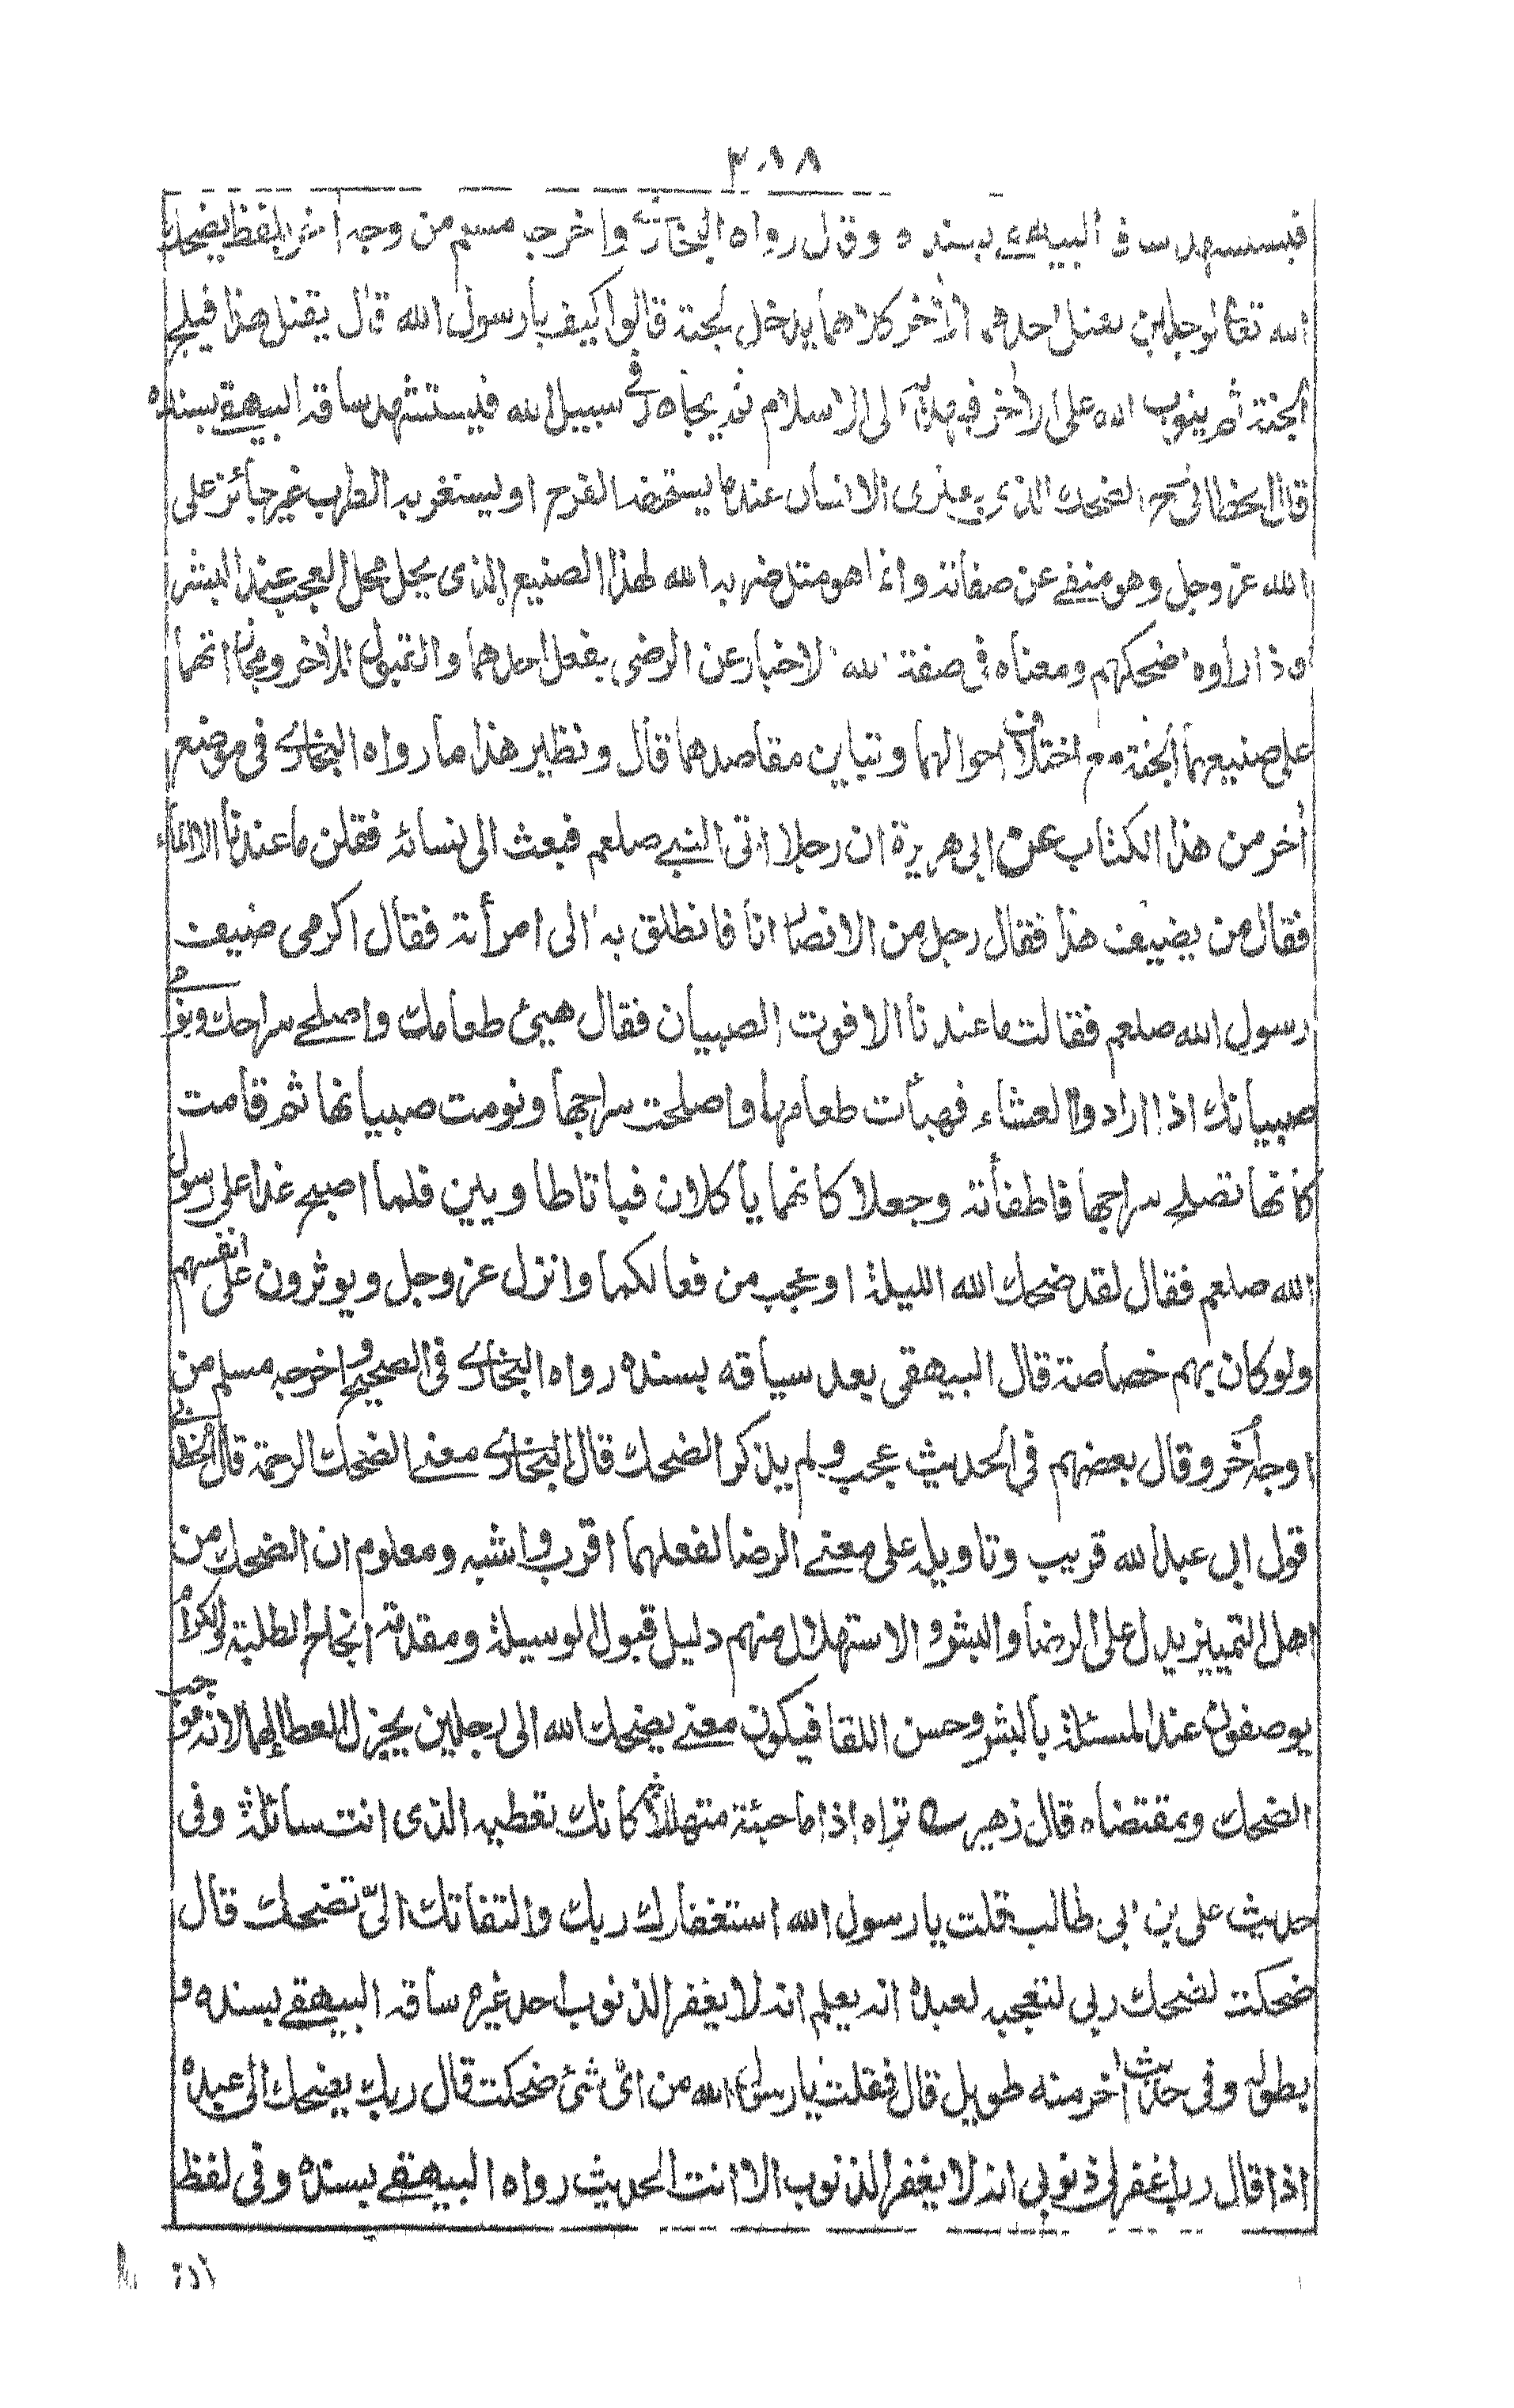 ٢٠٨
فيستشهد ساقه البيهقي بسنده وقال رواه البخاري واخرجه مسلم من وجه اخر بلفظ يضحك
الله تعالى لرجلين يقتل احدهما الآخر كلاهما يدخل الجنة قالوا كيف يا رسول الله قال يقتل هذا فيلج
الجنة ثم يتوب الله على الآخر فيهديه الى الاسلام ثم يجاهد في سبيل الله فيستشهد ساقه البيهقي بسنده
قال الخطابي رح الضحك الذي يعترى الانسان عندما يستخفه الفرح او يستفزه الطرب غير جائز على
الله عز وجل وهو منفي عن صفاته وانما هو مثل ضربه الله لهذا الصنيع الذي يحل محل العجب عند البشر
فاذا راوه اضحكهم ومعناه في صفة الله الاخبار عن الرضى بفعل احدهما والقبول للآخر ومجازاتهما
على صنيعهما الجنة مع اختلاف احوالهما وتباين مقاصدهما قال ونظير هذا ما رواه البخاري في موضع
آخر من هذا الكتاب عن ابي هريرة ان رجلا اتى النبي صلعم فبعث الى نسائه فقلن ما عندنا الا الماء
فقال من يضيف هذا فقال رجل من الانصار انا فانطلق به الى امرأته فقال اكرمي ضيف
رسول الله صلعم فقالت ما عندنا الا قوت الصبيان فقال هيئ طعامك واصلحي سراجك ونومي
صبيانك اذا ارادوا العشاء فهيأت طعامها واصلحت سراجها ونومت صبيانها ثم قامت
كانها تصلح سراجها فاطفأته وجعلا كانهما يأكلان فباتا طاويين فلما اصبح غدا على رسول
الله صلعم فقال لقد ضحك الله الليلة او عجب من فعالكما وانزل عز وجل ويوثرون على انفسهم
ولو كان بهم خصاصة قال البيهقى بعد سياقه بسنده رواه البخاري في الصحيح واخرجه مسلم من
اوجه أخر وقال بعضهم في الحديث عجب ولم يذكر الضحك قال البخاري معنى الضحك الرحمة قال الخطابي
قول ابى عبد الله قريب وتاويله على معنى الرضا لفعلهما اقرب واشبه ومعلوم ان الضحك من
اهل التمييز يدل على الرضا والبشر والاستهلال منهم دليل قبول الوسيلة ومقدمة انجاح الطلبة والكرام
يوصفون عند المسئلة بالبشر وحسن اللقا فيكون معنى يضحك الله الى رجلين يجزل العطا لهما لانه موجب
الضحك ومقتضاه قال زهير تراه اذا ما جئته متهللا كانك تعطيه الذى انت سائله وفى
حديث على بن ابي طالب قلت يا رسول الله استغفارك ربك والتفاتك الىّ تضحك قال
ضحكت لضحك ربى لتعجبه لعبده انه يعلم انه لا يغفر الذنوب احد غيره ساقه البيهقي بسنده و
بطوله وفى حديث آخر منه طويل قال فقلت يا رسول الله من اى شئ ضحكت قال ربك يضحك الى عبده
اذا قال رب اغفر لى ذنوبي انه لا يغفر الذنوب الا انت الحديث رواه البيهقي بسنده وفى لفظ